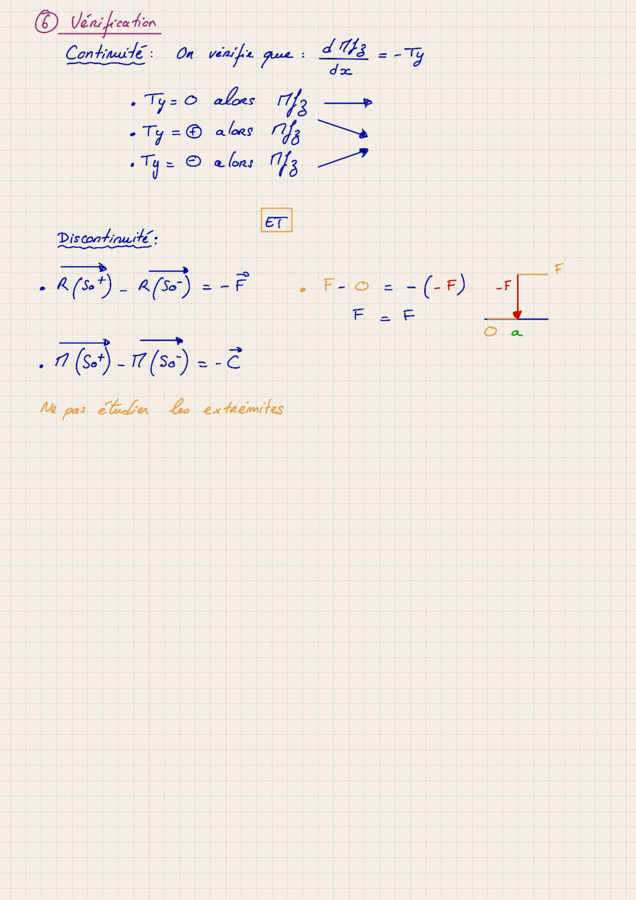 ⑥ Vérification
Continuité : On vérifie que : dMfz/dx = -Ty
• Ty = 0 alors Mfz →
• Ty = ⊕ alors Mfz ↘
• Ty = ⊖ alors Mfz ↗
ET
Discontinuité :
• R(So⁺) - R(So⁻) = -F⃗
• F - O = -(-F)
F = F
-F F
O a
• M(So⁺) - M(So⁻) = -C⃗
Ne pas étudier les extrémites